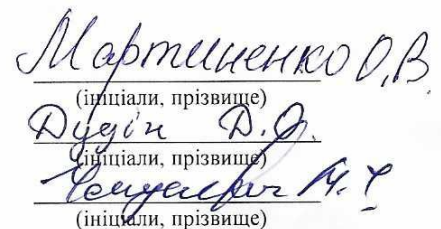 Мартиненко О.В.
(ініціали, прізвище)
Дудін Д.О.
(ініціали, прізвище)
М.Ч
(ініціали, прізвище)